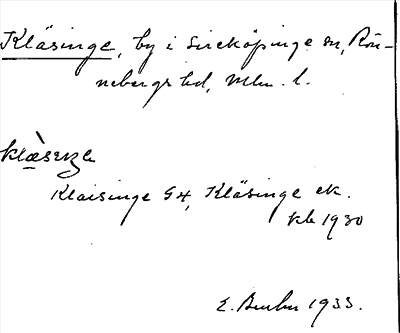 Kläsinge, by i Sireköpinge sn, Rön-
nebergs hd, Mlm. l.
klæ̀seŋə
Klaisinge G4, Kläsinge ek.
kb 1930
E. 1933.